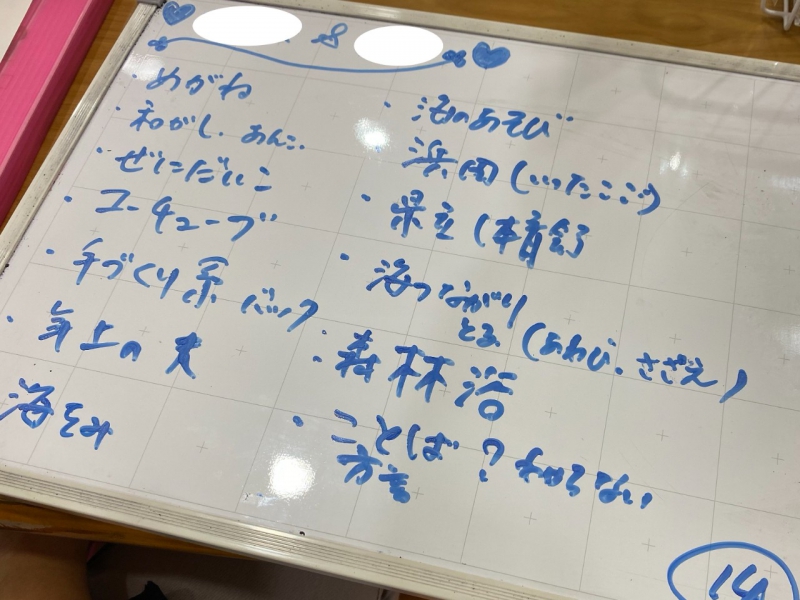 &
・めがね
・わがし. あんこ
・ぜにだいこ
・ユーチューブ
・手づくり系 バック
・年上の夫
海をみ
・海のあそび
浜田(いったことご)
・県立(体育館
・海つながり
とる(あわび.さざえ)
・森林浴
・ことば?わからない
方言
14